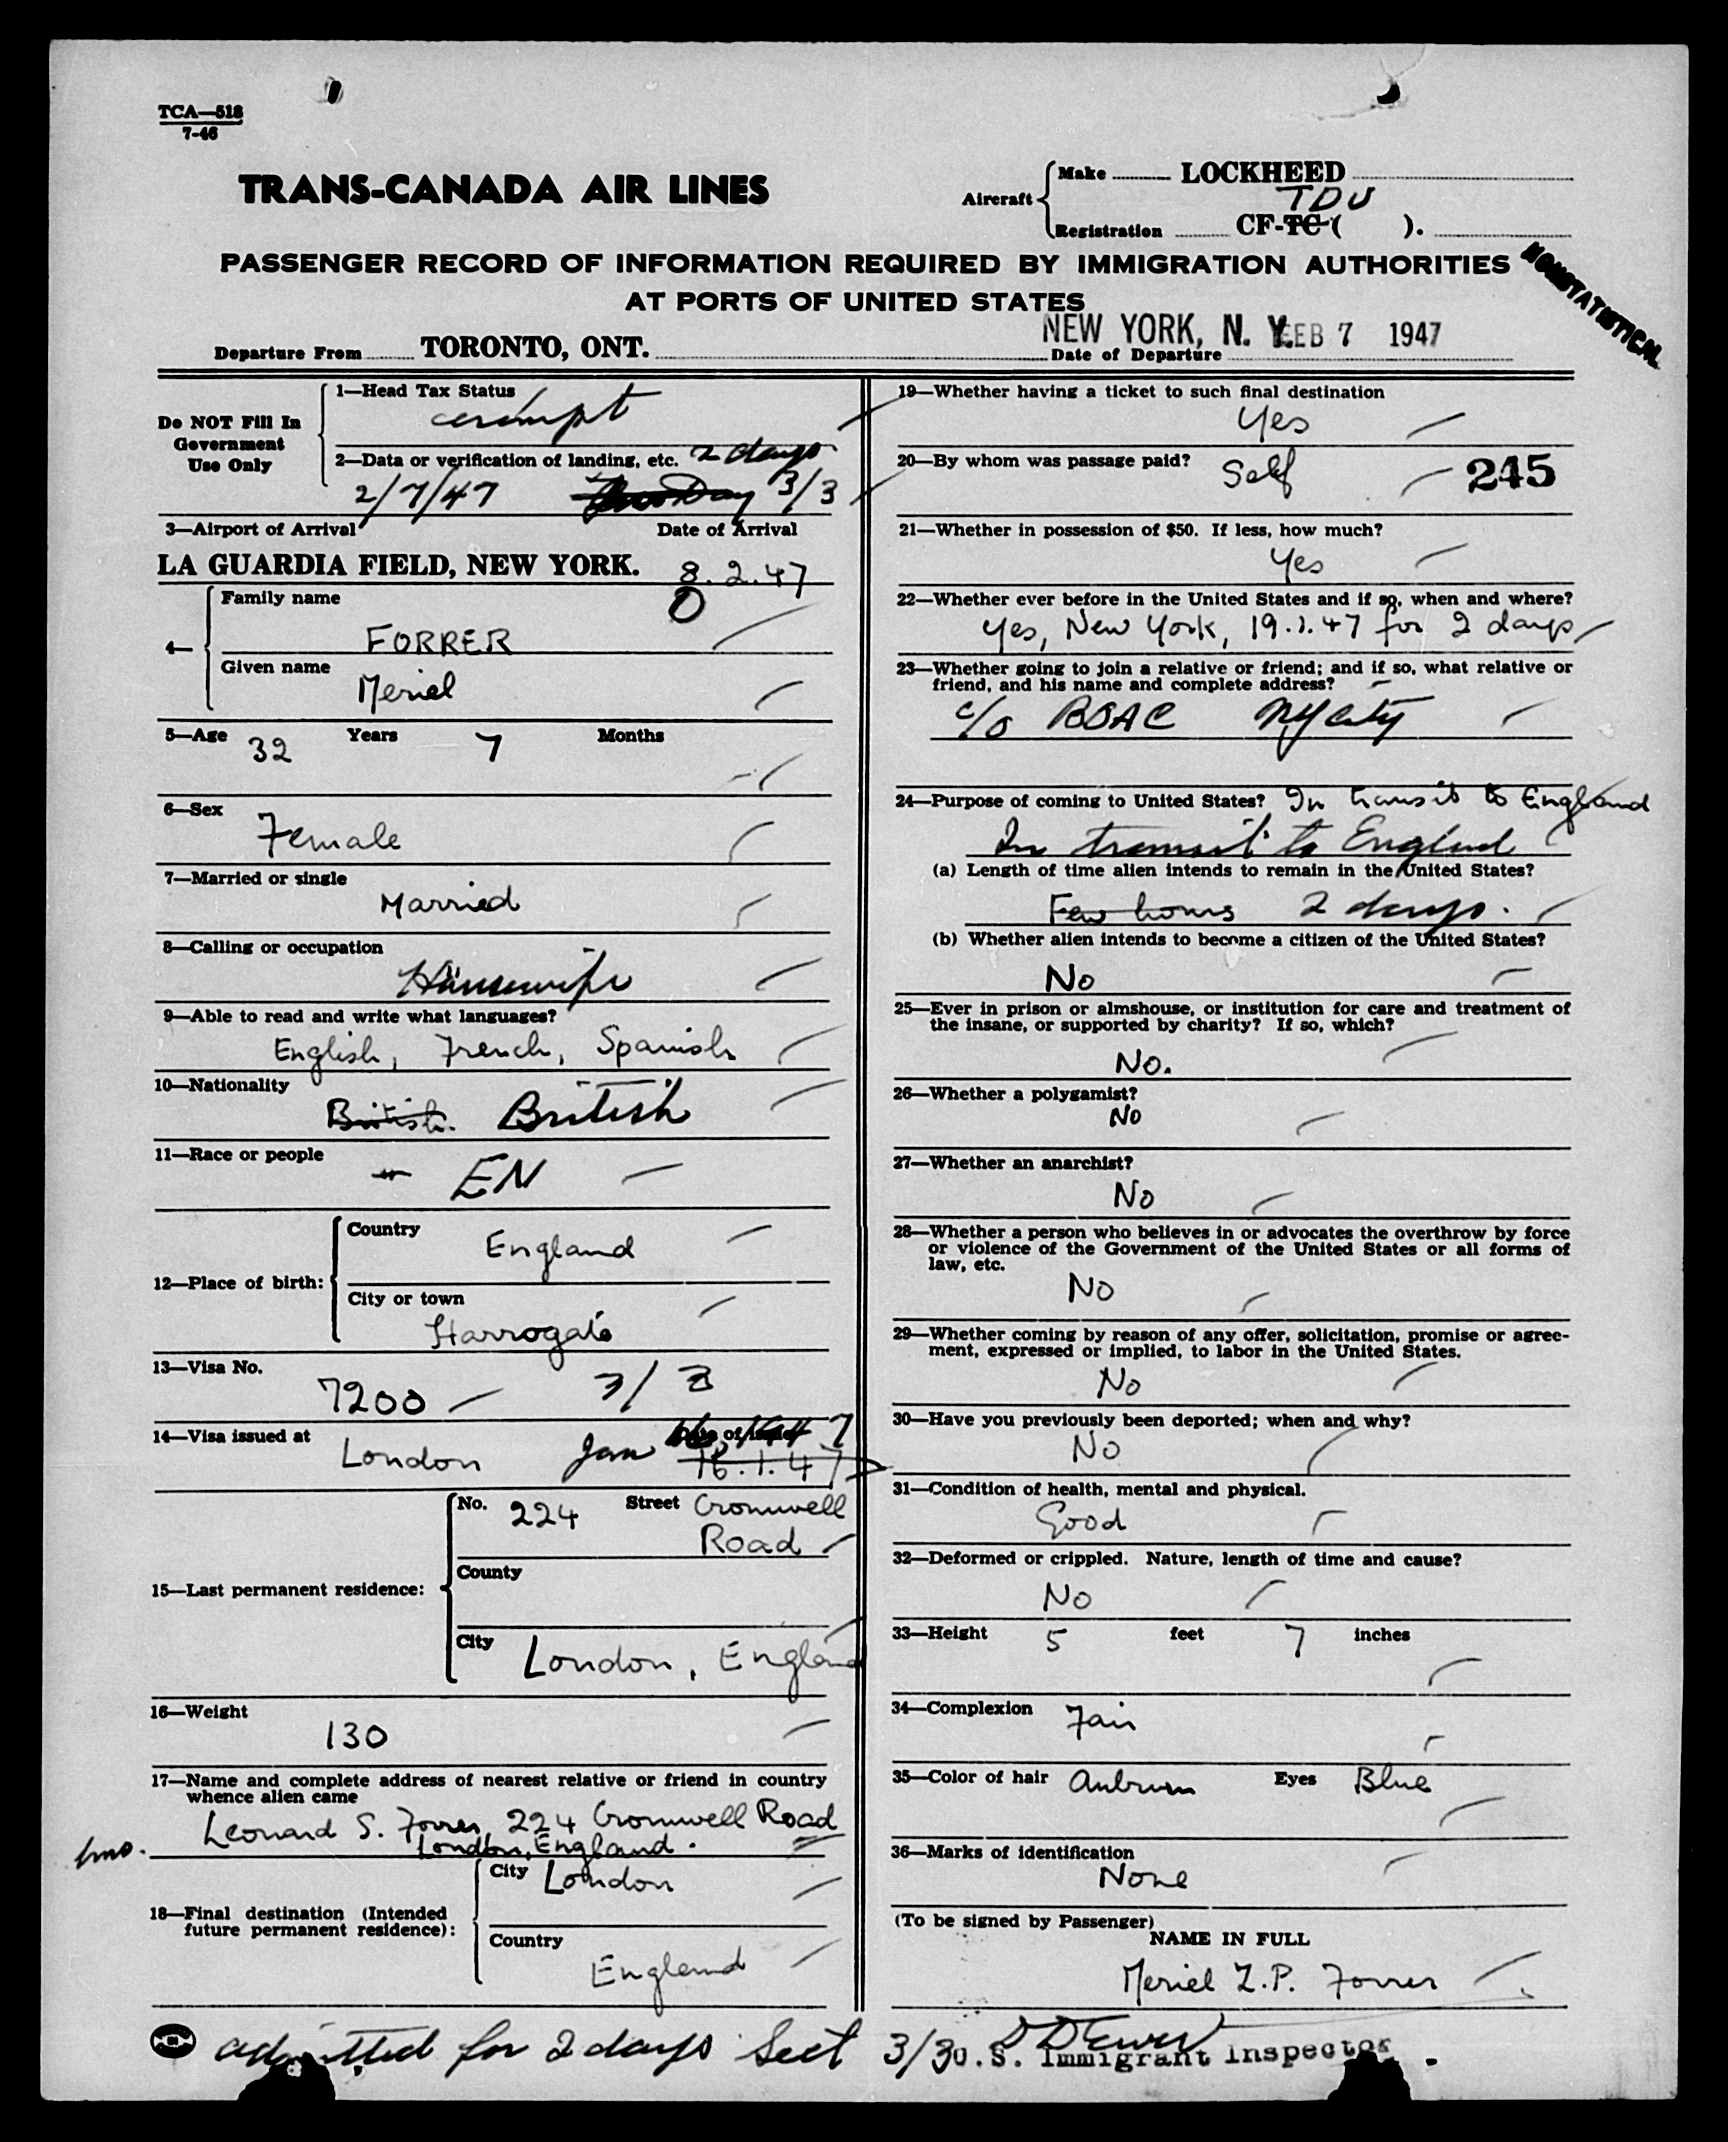 TCA—518
7-46
TRANS-CANADA AIR LINES
Aircraft
Make LOCKHEED
TDU
Registration CF-TC-( ).
PASSENGER RECORD OF INFORMATION REQUIRED BY IMMIGRATION AUTHORITIES
AT PORTS OF UNITED STATES
NONSTATISTICAL
NEW YORK, N. Y. FEB 7 1947
Departure From TORONTO, ONT. Date of Departure
Do NOT Fill In
Government
Use Only
1—Head Tax Status
exempt
2—Data or verification of landing, etc. 2 days
2/7/47 3/3
3—Airport of Arrival Date of Arrival
LA GUARDIA FIELD, NEW YORK. 8.2.47
4—
Family name
FORRER
Given name
Meriel
5—Age 32 Years 7 Months
6—Sex
Female
7—Married or single
Married
8—Calling or occupation
Housewife
9—Able to read and write what languages?
English, French, Spanish
10—Nationality
British. British
11—Race or people
EN
12—Place of birth:
Country
England
City or town
Harrogate
13—Visa No.
7200 3/3
14—Visa issued at
London Jan 7
16.1.47
15—Last permanent residence:
No. 224 Street Cromwell
Road
County
City London, England
16—Weight
130
17—Name and complete address of nearest relative or friend in country
whence alien came
Leonard S. Forrer, 224 Cromwell Road
London, England.
18—Final destination (Intended
future permanent residence):
City London
Country
England
19—Whether having a ticket to such final destination
Yes
20—By whom was passage paid? Self 245
21—Whether in possession of $50. If less, how much?
Yes
22—Whether ever before in the United States and if so, when and where?
Yes, New York, 19.1.47 for 2 days
23—Whether going to join a relative or friend; and if so, what relative or
friend, and his name and complete address?
c/o BOAC NY City
24—Purpose of coming to United States? In transit to England
In transit to England
(a) Length of time alien intends to remain in the United States?
Few hours 2 days.
(b) Whether alien intends to become a citizen of the United States?
No
25—Ever in prison or almshouse, or institution for care and treatment of
the insane, or supported by charity? If so, which?
No.
26—Whether a polygamist?
No
27—Whether an anarchist?
No
28—Whether a person who believes in or advocates the overthrow by force
or violence of the Government of the United States or all forms of
law, etc.
No
29—Whether coming by reason of any offer, solicitation, promise or agree-
ment, expressed or implied, to labor in the United States.
No
30—Have you previously been deported; when and why?
No
31—Condition of health, mental and physical.
Good
32—Deformed or crippled. Nature, length of time and cause?
No
33—Height 5 feet 7 inches
34—Complexion Fair
35—Color of hair Auburn Eyes Blue
36—Marks of identification
None
(To be signed by Passenger)
NAME IN FULL
Meriel Z.P. Forrer
admitted for 2 days Sect 3/3
U.S. Immigrant Inspector.